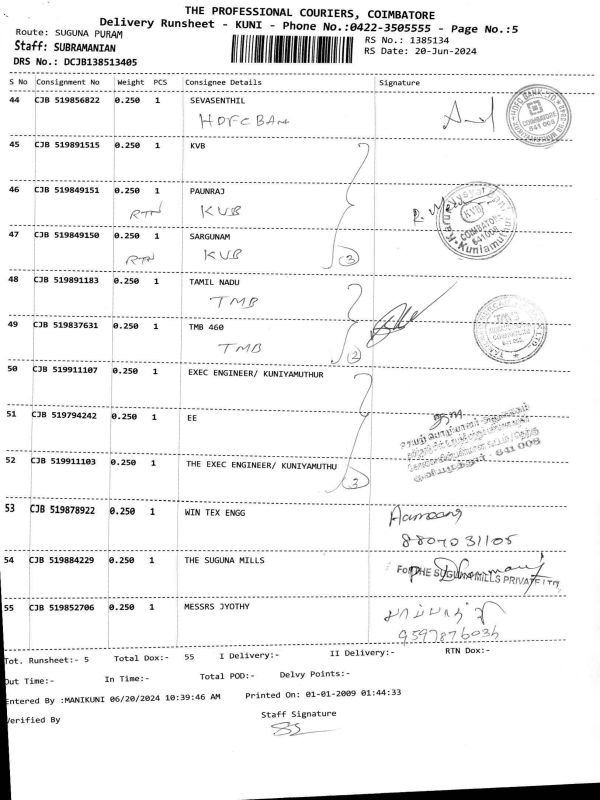 THE PROFESSIONAL COURIERS, COIMBATORE
Delivery Runsheet - KUNI - Phone No.:0422-3505555 - Page No.:5
Route: SUGUNA PURAM
RS No.: 1385134
Staff: SUBRAMANIAN
RS Date: 20-Jun-2024
DRS No.: DCJB138513405
S No Consignment No Weight PCS Consignee Details Signature
44 CJB 519856822 0.250 1 SEVASENTHIL
HDFC BANK
45 CJB 519891515 0.250 1 KVB
46 CJB 519849151 0.250 1 PAUNRAJ
RTN KVB
47 CJB 519849150 0.250 1 SARGUNAM
RTN KVB
3
48 CJB 519891183 0.250 1 TAMIL NADU
TMB
49 CJB 519837631 0.250 1 TMB 460
TMB
2
50 CJB 519911107 0.250 1 EXEC ENGINEER/ KUNIYAMUTHUR
51 CJB 519794242 0.250 1 EE
641 008
52 CJB 519911103 0.250 1 THE EXEC ENGINEER/ KUNIYAMUTHU
3
53 CJB 519878922 0.250 1 WIN TEX ENGG
8807031105
54 CJB 519884229 0.250 1 THE SUGUNA MILLS
For THE SUGUNA MILLS PRIVATE LTD
55 CJB 519852706 0.250 1 MESSRS JYOTHY
9597876036
Tot. Runsheet:- 5 Total Dox:- 55 I Delivery:- II Delivery:- RTN Dox:-
Out Time:- In Time:- Total POD:- Delvy Points:-
Entered By :MANIKUNI 06/20/2024 10:39:46 AM Printed On: 01-01-2009 01:44:33
Verified By Staff Signature